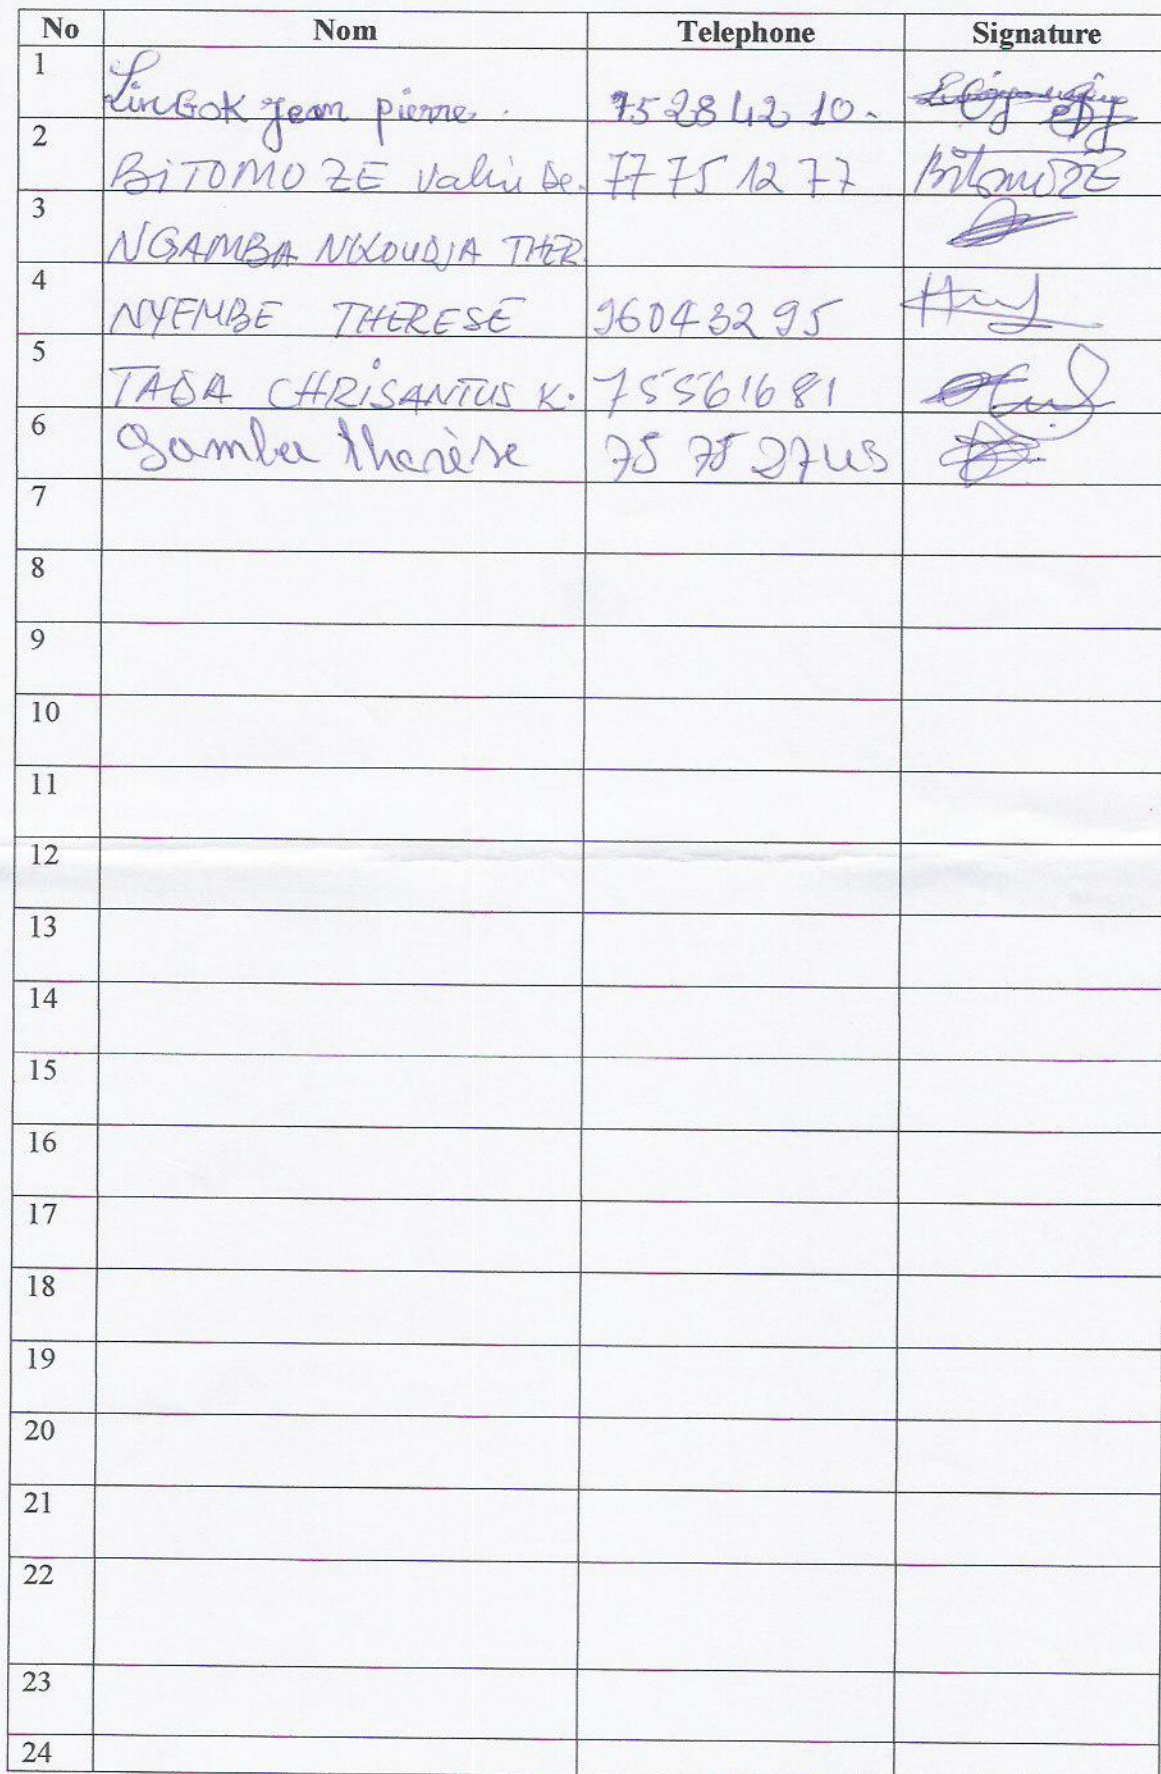 No Nom Telephone Signature
1 LinGok jean pierre. 75 28 42 10.
2 BITOMO ZE 77 75 12 77 BitomoZE
3 NGAMBA NKOUDJA THER
4 NYEMBE THERESE 96043295
5 CHRISANTUS K. 75561681
6 Gamba thérèse 75 75
7
8
9
10
11
12
13
14
15
16
17
18
19
20
21
22
23
24